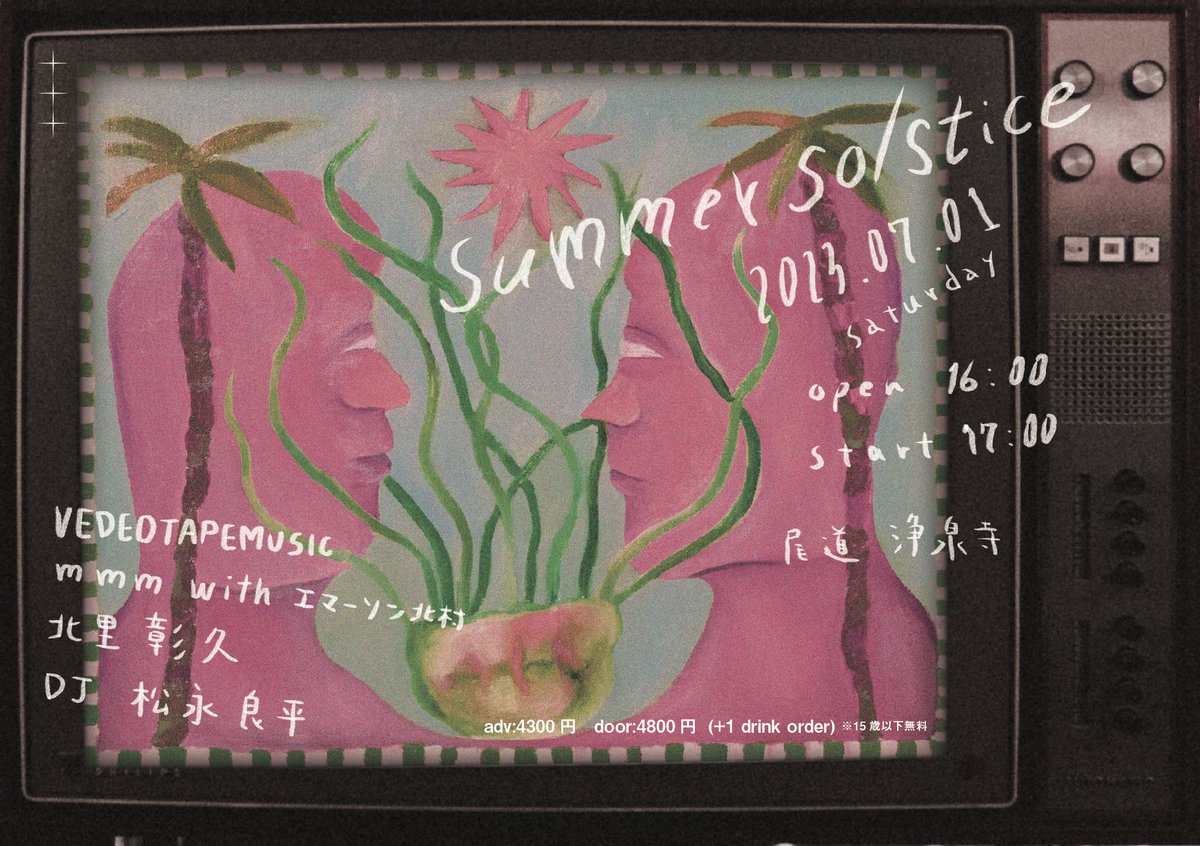 summer solstice
2023.07.01
saturday
open 16:00
start 17:00
尾道 浄泉寺
VEDEOTAPEMUSIC
mmm with エマーソン北村
北里 彰久
DJ 松永 良平
adv:4300円 door:4800円 (+1 drink order) ※15歳以下無料
PHILIPS